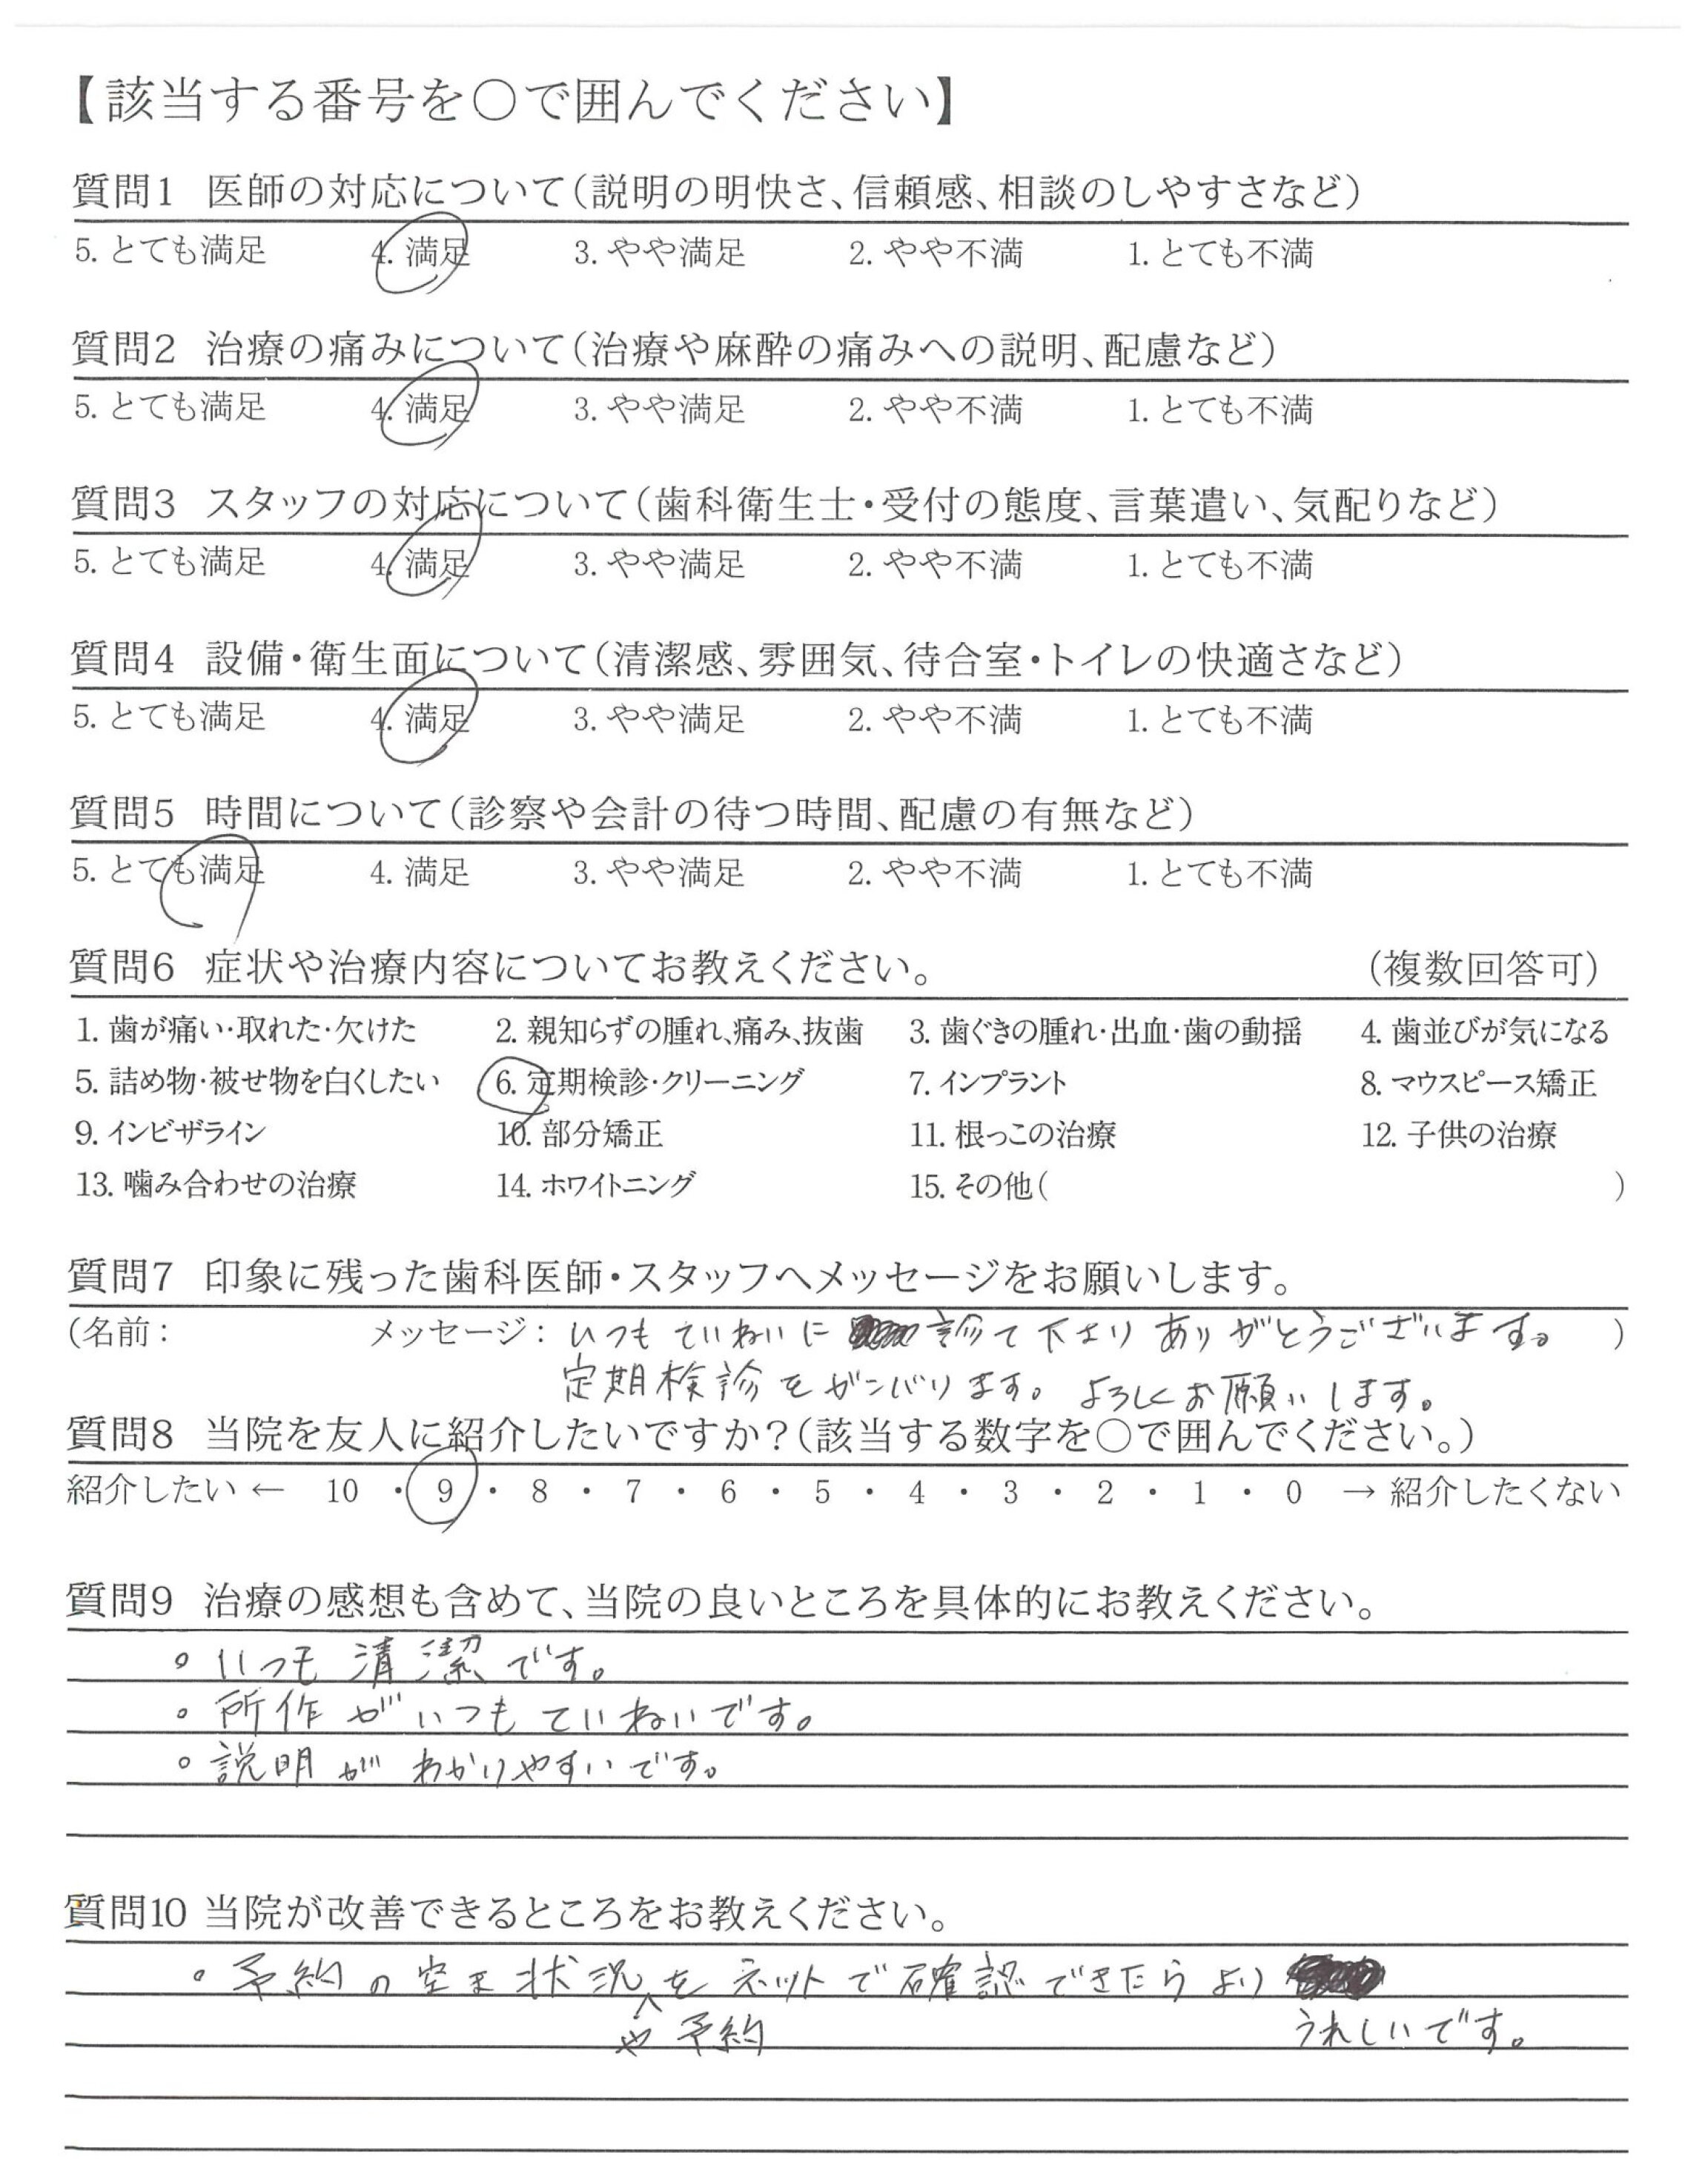 【該当する番号を○で囲んでください】
質問1 医師の対応について(説明の明快さ、信頼感、相談のしやすさなど)
5. とても満足 4. 満足 3. やや満足 2. やや不満 1. とても不満
質問2 治療の痛みについて(治療や麻酔の痛みへの説明、配慮など)
5. とても満足 4. 満足 3. やや満足 2. やや不満 1. とても不満
質問3 スタッフの対応について(歯科衛生士・受付の態度、言葉遣い、気配りなど)
5. とても満足 4. 満足 3. やや満足 2. やや不満 1. とても不満
質問4 設備・衛生面について(清潔感、雰囲気、待合室・トイレの快適さなど)
5. とても満足 4. 満足 3. やや満足 2. やや不満 1. とても不満
質問5 時間について(診察や会計の待つ時間、配慮の有無など)
5. とても満足 4. 満足 3. やや満足 2. やや不満 1. とても不満
質問6 症状や治療内容についてお教えください。 (複数回答可)
1. 歯が痛い・取れた・欠けた 2. 親知らずの腫れ、痛み、抜歯 3. 歯ぐきの腫れ・出血・歯の動揺 4. 歯並びが気になる
5. 詰め物・被せ物を白くしたい 6. 定期検診・クリーニング 7. インプラント 8. マウスピース矯正
9. インビザライン 10. 部分矯正 11. 根っこの治療 12. 子供の治療
13. 噛み合わせの治療 14. ホワイトニング 15. その他( )
質問7 印象に残った歯科医師・スタッフへメッセージをお願いします。
(名前: メッセージ: いつもていねいに診て下さりありがとうございます。 )
定期検診をがんばります。よろしくお願いします。
質問8 当院を友人に紹介したいですか?(該当する数字を○で囲んでください。)
紹介したい ← 10 ・ 9 ・ 8 ・ 7 ・ 6 ・ 5 ・ 4 ・ 3 ・ 2 ・ 1 ・ 0 → 紹介したくない
質問9 治療の感想も含めて、当院の良いところを具体的にお教えください。
。いつも清潔です。
。所作がいつもていねいです。
。説明がわかりやすいです。
質問10 当院が改善できるところをお教えください。
。予約の空き状況をネットで確認できたらより
や予約 うれしいです。